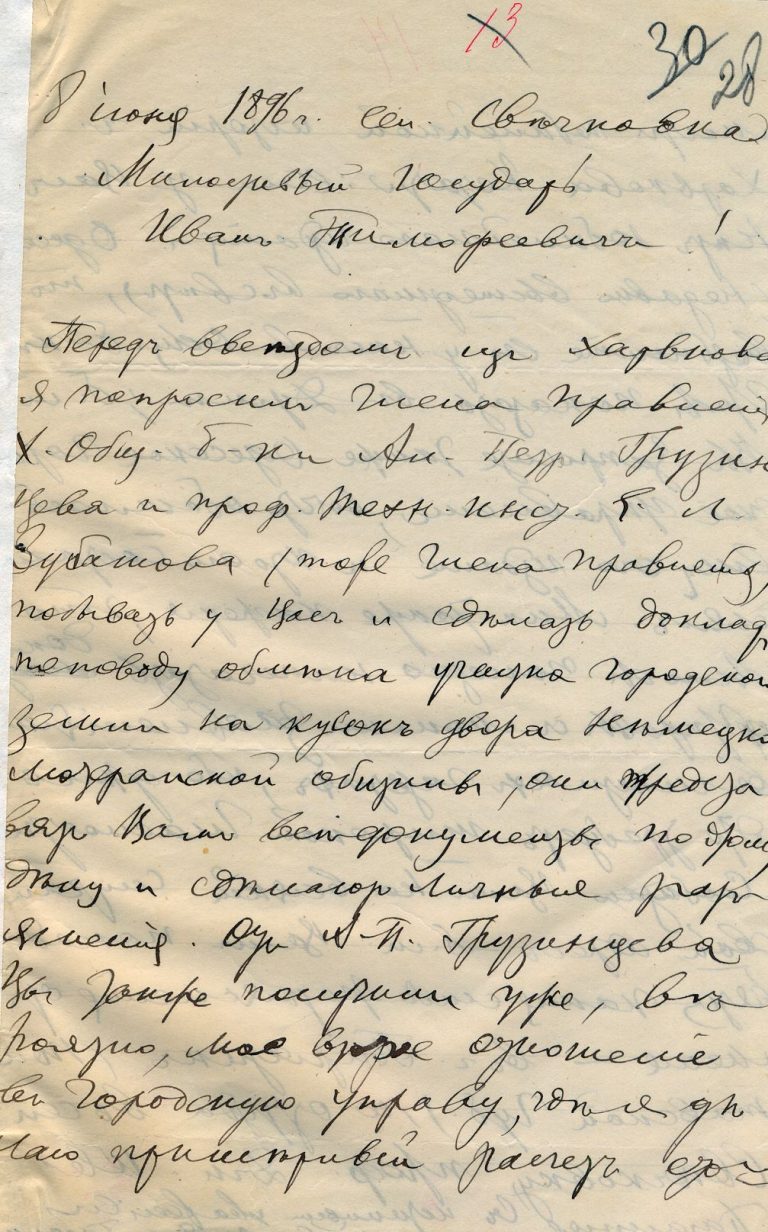 13
30
28
8 іюня 1896 г. сел. Свѣчковка
Милостивый Государь
Иванъ Тимофеевичъ!
Передъ выѣздомъ изъ Харькова
я попросилъ члена правленія
Х. Общ. б-ки Ал. Петр. Грузин
цева и проф. Техн. Инст.
Зубашова (тоже члена правленія)
побывать у Васъ и сдѣлать докладъ
по поводу обмѣна участка городской
земли на кусокъ двора Нѣмецко
лютеранской общины; они предста
вятъ Вамъ всѣ документы по этому
дѣлу и сдѣлаютъ личныя разъ
ясненія. Отъ А. П. Грузинцева
Вы также получили уже, вѣ
роятно, мое отношеніе
въ Городскую управу, гдѣ я дѣ
лаю примѣрный расчетъ